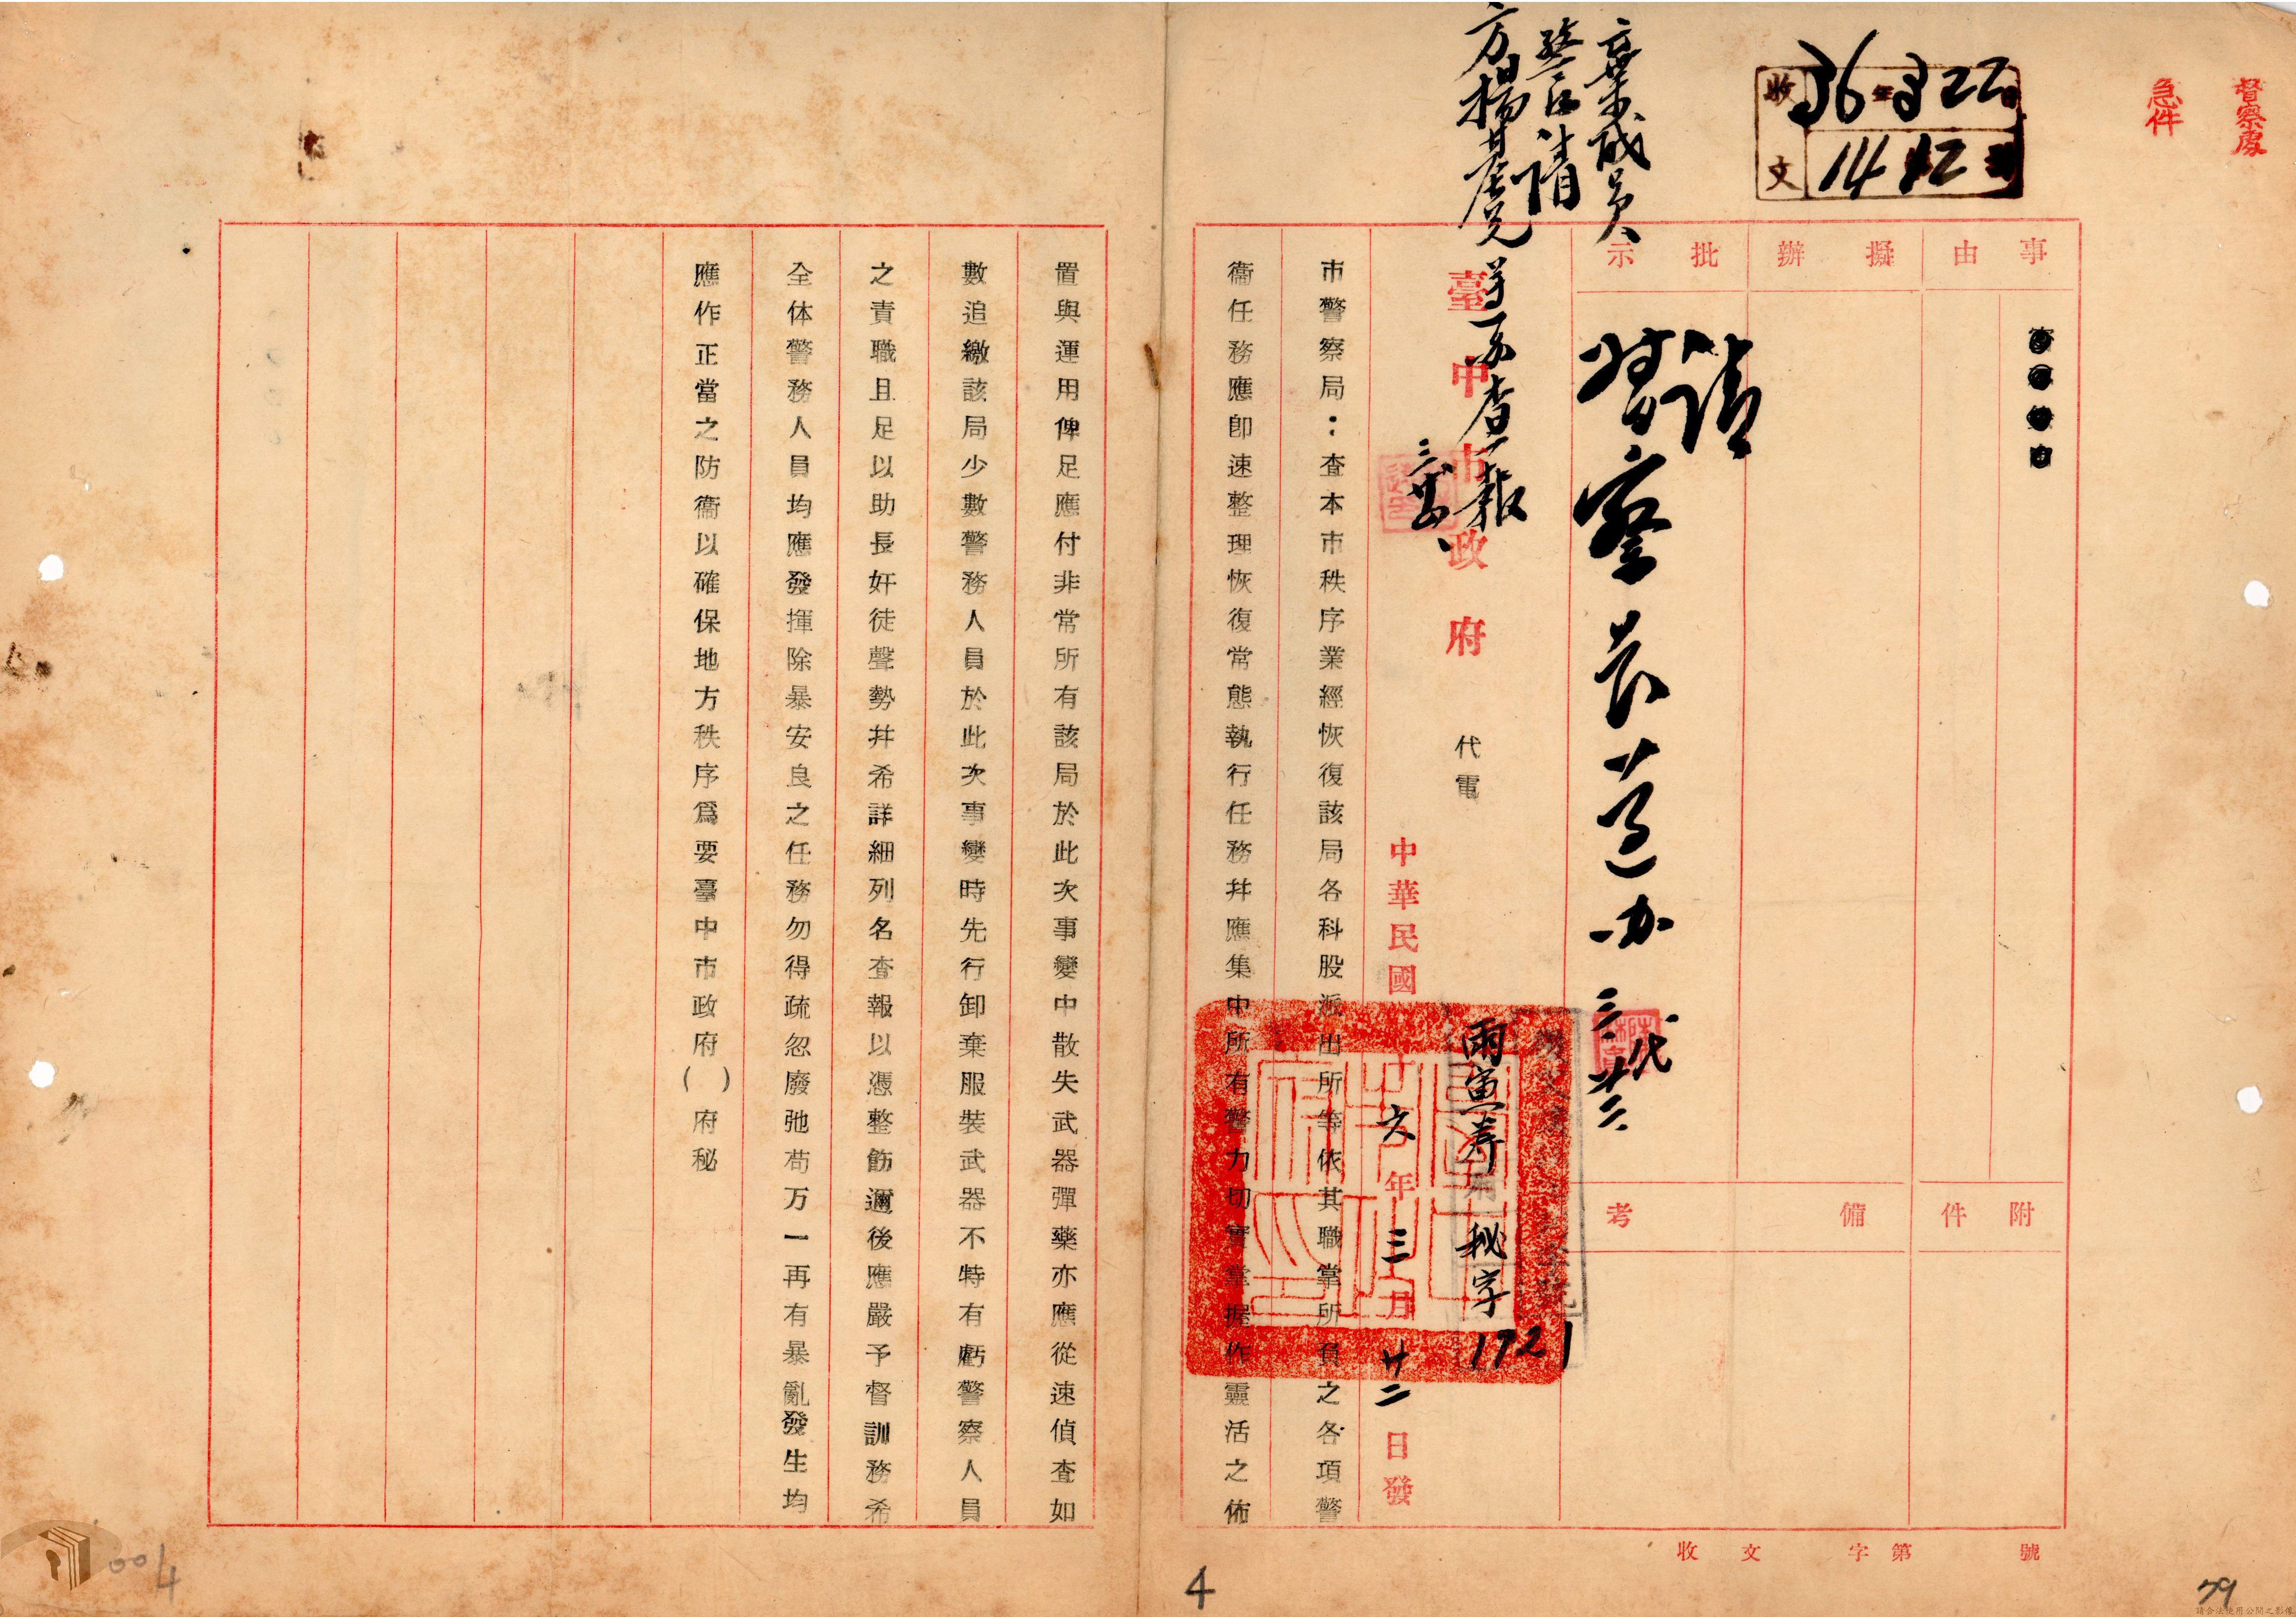 督察處
急件
收文
36年322
1412
事由
擬辦
批示
附件
備考
收文 字第 號
請
督察長遵办
三廿二
臺中市政府
代電
雨寅寿
秘字
1721
中華民國
六年三月廿二日發
市警察局：查本市秩序業經恢復該局各科股派出所等依其職掌所負之各項警
衞任務應卽速整理恢復常態執行任務幷應集中所有警力切實掌握作靈活之佈
置與運用俾足應付非常所有該局於此次事變中散失武器彈藥亦應從速偵查如
數追繳該局少數警務人員於此次事變時先行卸棄服裝武器不特有虧警察人員
之責職且足以助長奸徒聲勢幷希詳細列名查報以憑整飭邇後應嚴予督訓務希
全体警務人員均應發揮除暴安良之任務勿得疏忽廢弛苟万一再有暴亂發生均
應作正當之防衞以確保地方秩序爲要臺中市政府（　）府秘
4
79
004
請合法使用公開之影像